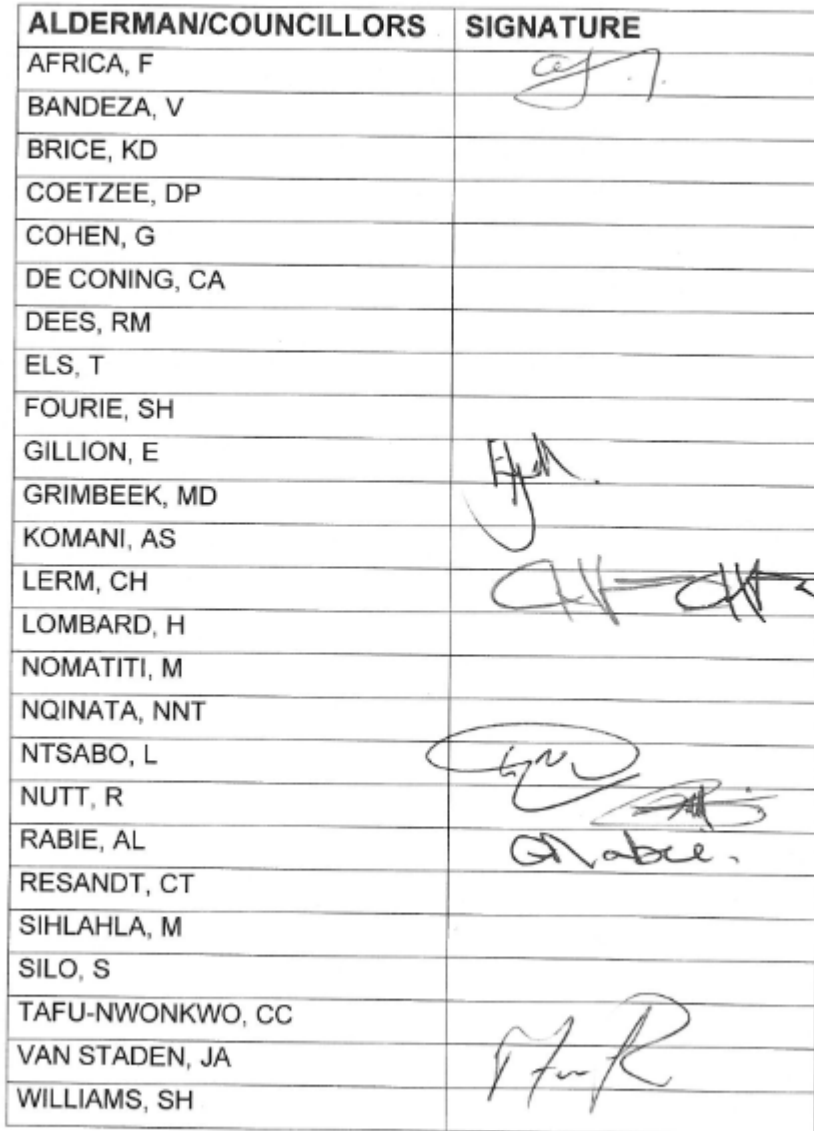 ALDERMAN/COUNCILLORS SIGNATURE
AFRICA, F
BANDEZA, V
BRICE, KD
COETZEE, DP
COHEN, G
DE CONING, CA
DEES, RM
ELS, T
FOURIE, SH
GILLION, E
GRIMBEEK, MD
KOMANI, AS
LERM, CH
LOMBARD, H
NOMATITI, M
NQINATA, NNT
NTSABO, L
NUTT, R
RABIE, AL
RESANDT, CT
SIHLAHLA, M
SILO, S
TAFU-NWONKWO, CC
VAN STADEN, JA
WILLIAMS, SH